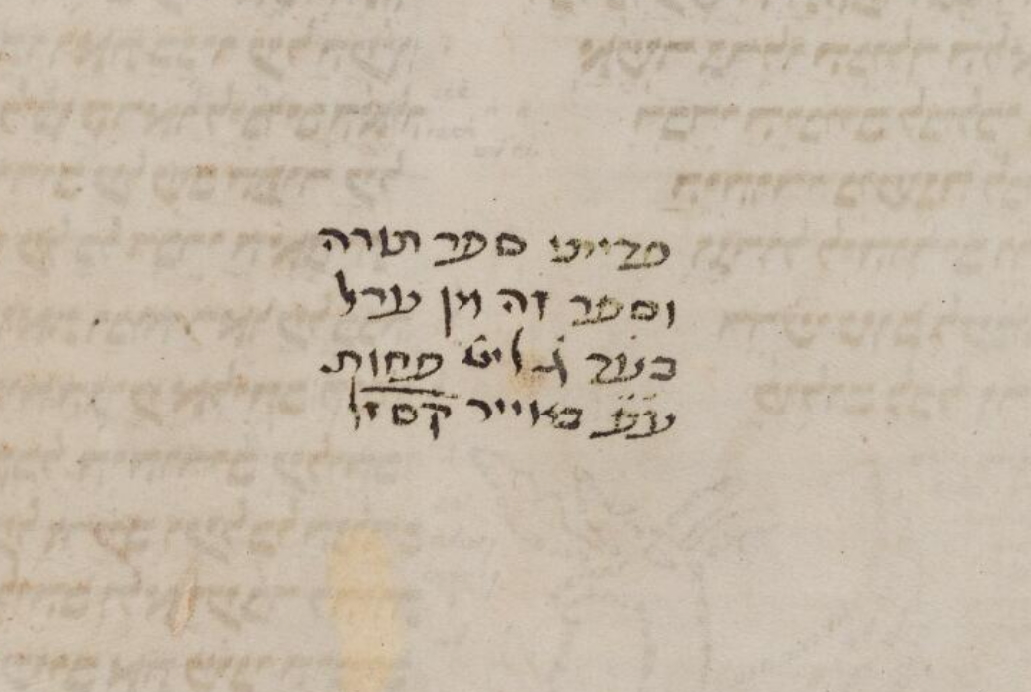 פדיתי ספר תורה
וספר זה מן ערל
בעד ג' ליט' פחות
באייר קסז